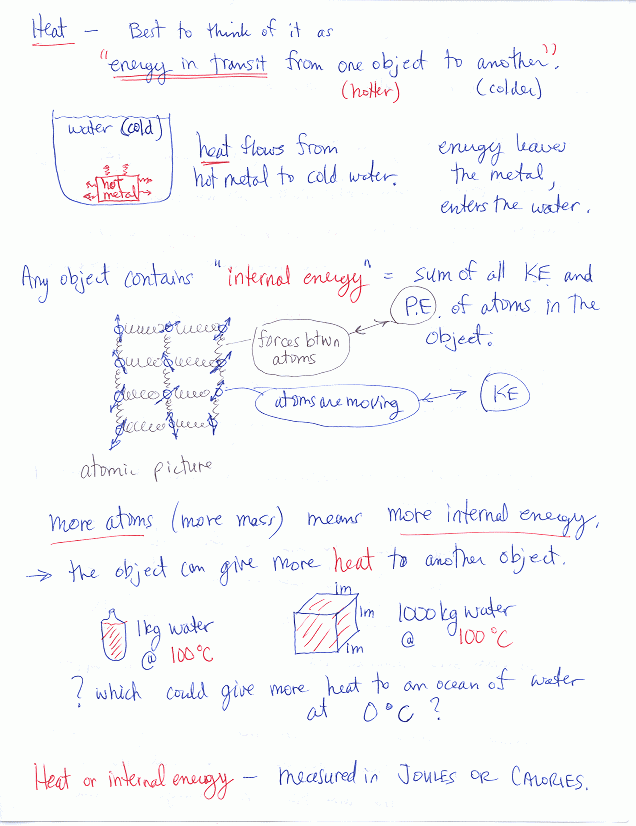 Heat – Best to think of it as
"energy in transit from one object to another".
(hotter) (colder)
water (cold)
hot
metal
heat flows from
hot metal to cold water.
energy leaves
the metal,
enters the water.
Any object contains "internal energy" = sum of all KE and
P.E. of atoms in the
object:
forces btwn
atoms
atoms are moving
KE
atomic picture
more atoms (more mass) means more internal energy.
→ the object can give more heat to another object.
1kg water
@ 100°C
1m
1m
1m
1000kg water
@ 100°C
? which could give more heat to an ocean of water
at 0°C ?
Heat or internal energy – measured in JOULES OR CALORIES.